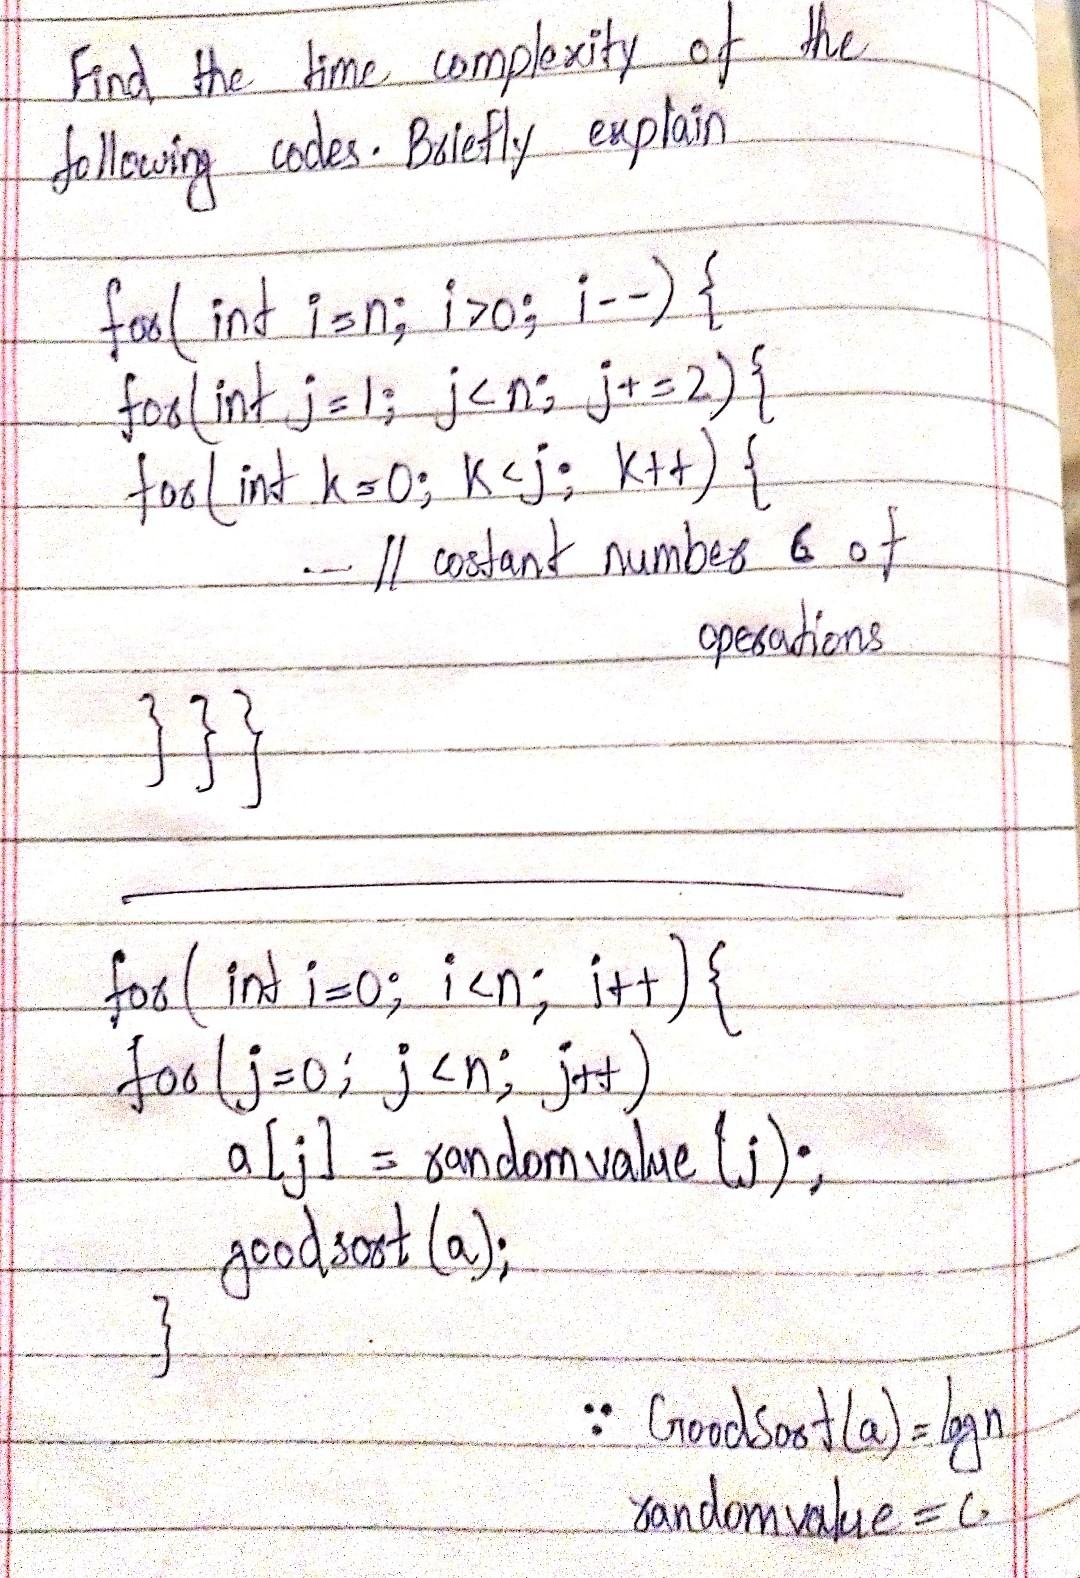 Find the time complexity of the
following codes. Briefly explain
for( int i=n; i>0; i--) {
for(int j=1; j<n; j+=2){
for(int k=0; k<j; k++) {
... // costant number C of
operations
}}}
for( int i=0; i<n; i++) {
for(j=0; j<n; j++)
a[j] = randomvalue (j);
goodsort (a);
}
∵ GoodSort(a) = logn
randomvalue = C